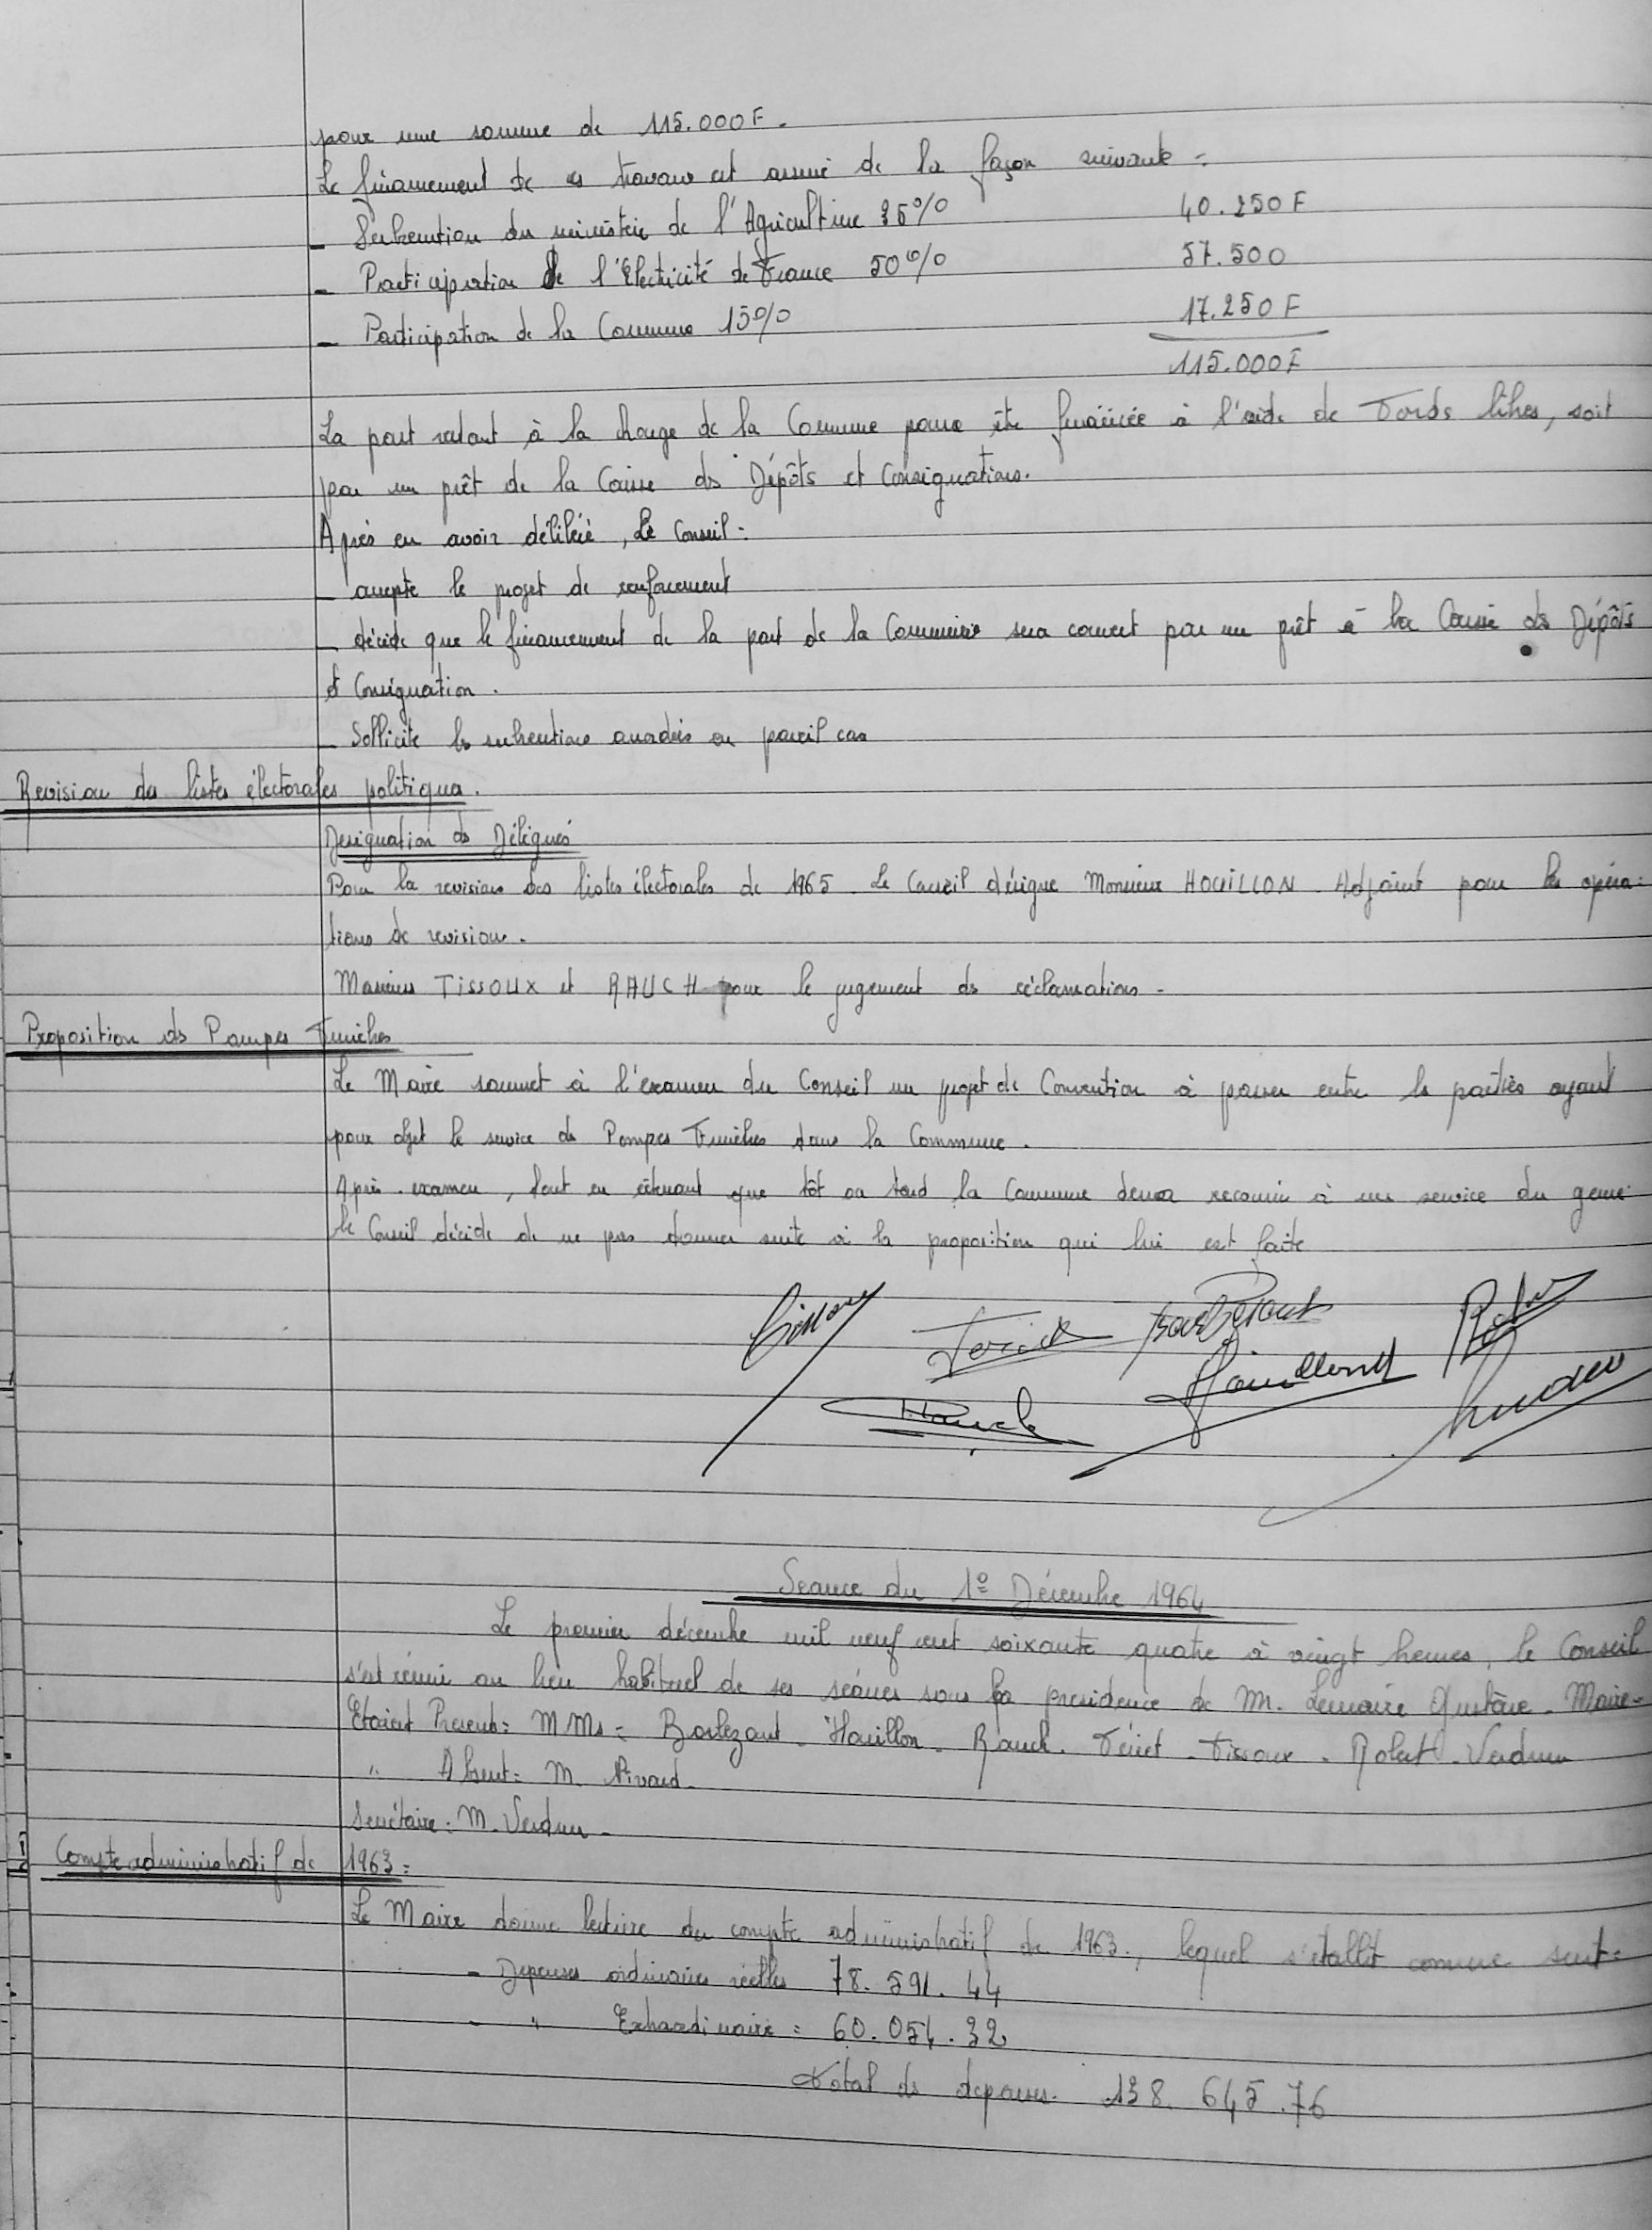 pour une somme de 115.000F.
Le financement de ces travaux est assuré de la façon suivante =
- Subvention du ministère de l'Agriculture 35% 40.250 F
- Participation de l'Electricité de France 50% 57.500
- Participation de la Commune 15% 17.250 F
115.000F
La part restant à la charge de la Commune pourra être financée à l'aide de Fonds libres, soit
par un prêt de la Caisse des Dépôts et Consignations.
Après en avoir délibéré, Le Conseil :
- accepte le projet de renforcement
- décide que le financement de la part de la Commune sera couvert par un prêt à la Caisse des Dépôts
et Consignation.
- Sollicite les subventions accordées en pareil cas
Revision des listes électorales politiques.
Designation des Délégués
Pour la revision des listes électorales de 1965. Le Conseil désigne Monsieur HOUILLON Adjoint pour les opéra=
tions de revision.
Messieurs TISSOUX et RAUCH pour le jugement des réclamations -
Proposition des Pompes Funèbres
Le Maire soumet à l'examen du Conseil un projet de Convention à passer entre les parties ayant
pour objet le service des Pompes Funèbres dans la Commune.
Après examen, tout en retenant que tôt ou tard la Commune devra recourir à un service du genre
le Conseil décide de ne pas donner suite à la proposition qui lui est faite
Seance du 1º Décembre 1964
Le premier décembre mil neuf cent soixante quatre à vingt heures, le Conseil
s'est réuni au lieu habituel de ses séances sous la presidence de Mr. Lemaire Gustave. Maire-
Etaient Presents = M Ms = Barbezant - Houillon - Rauch - Fériet - Tissoux - Robert - Verdun
" Absent = M. Nivard -
Secrétaire : M. Verdun -
Compte administratif de 1963 =
Le Maire donne lecture du compte administratif de 1963., lequel s'établit comme suit =
- Depenses ordinaires réelles 78.591.44
- " Extraordinaire = 60.054.32
Total des depenses. 138.645.76